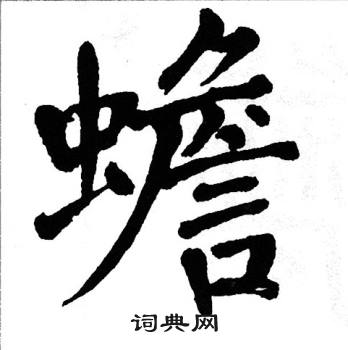 蟾
词典网